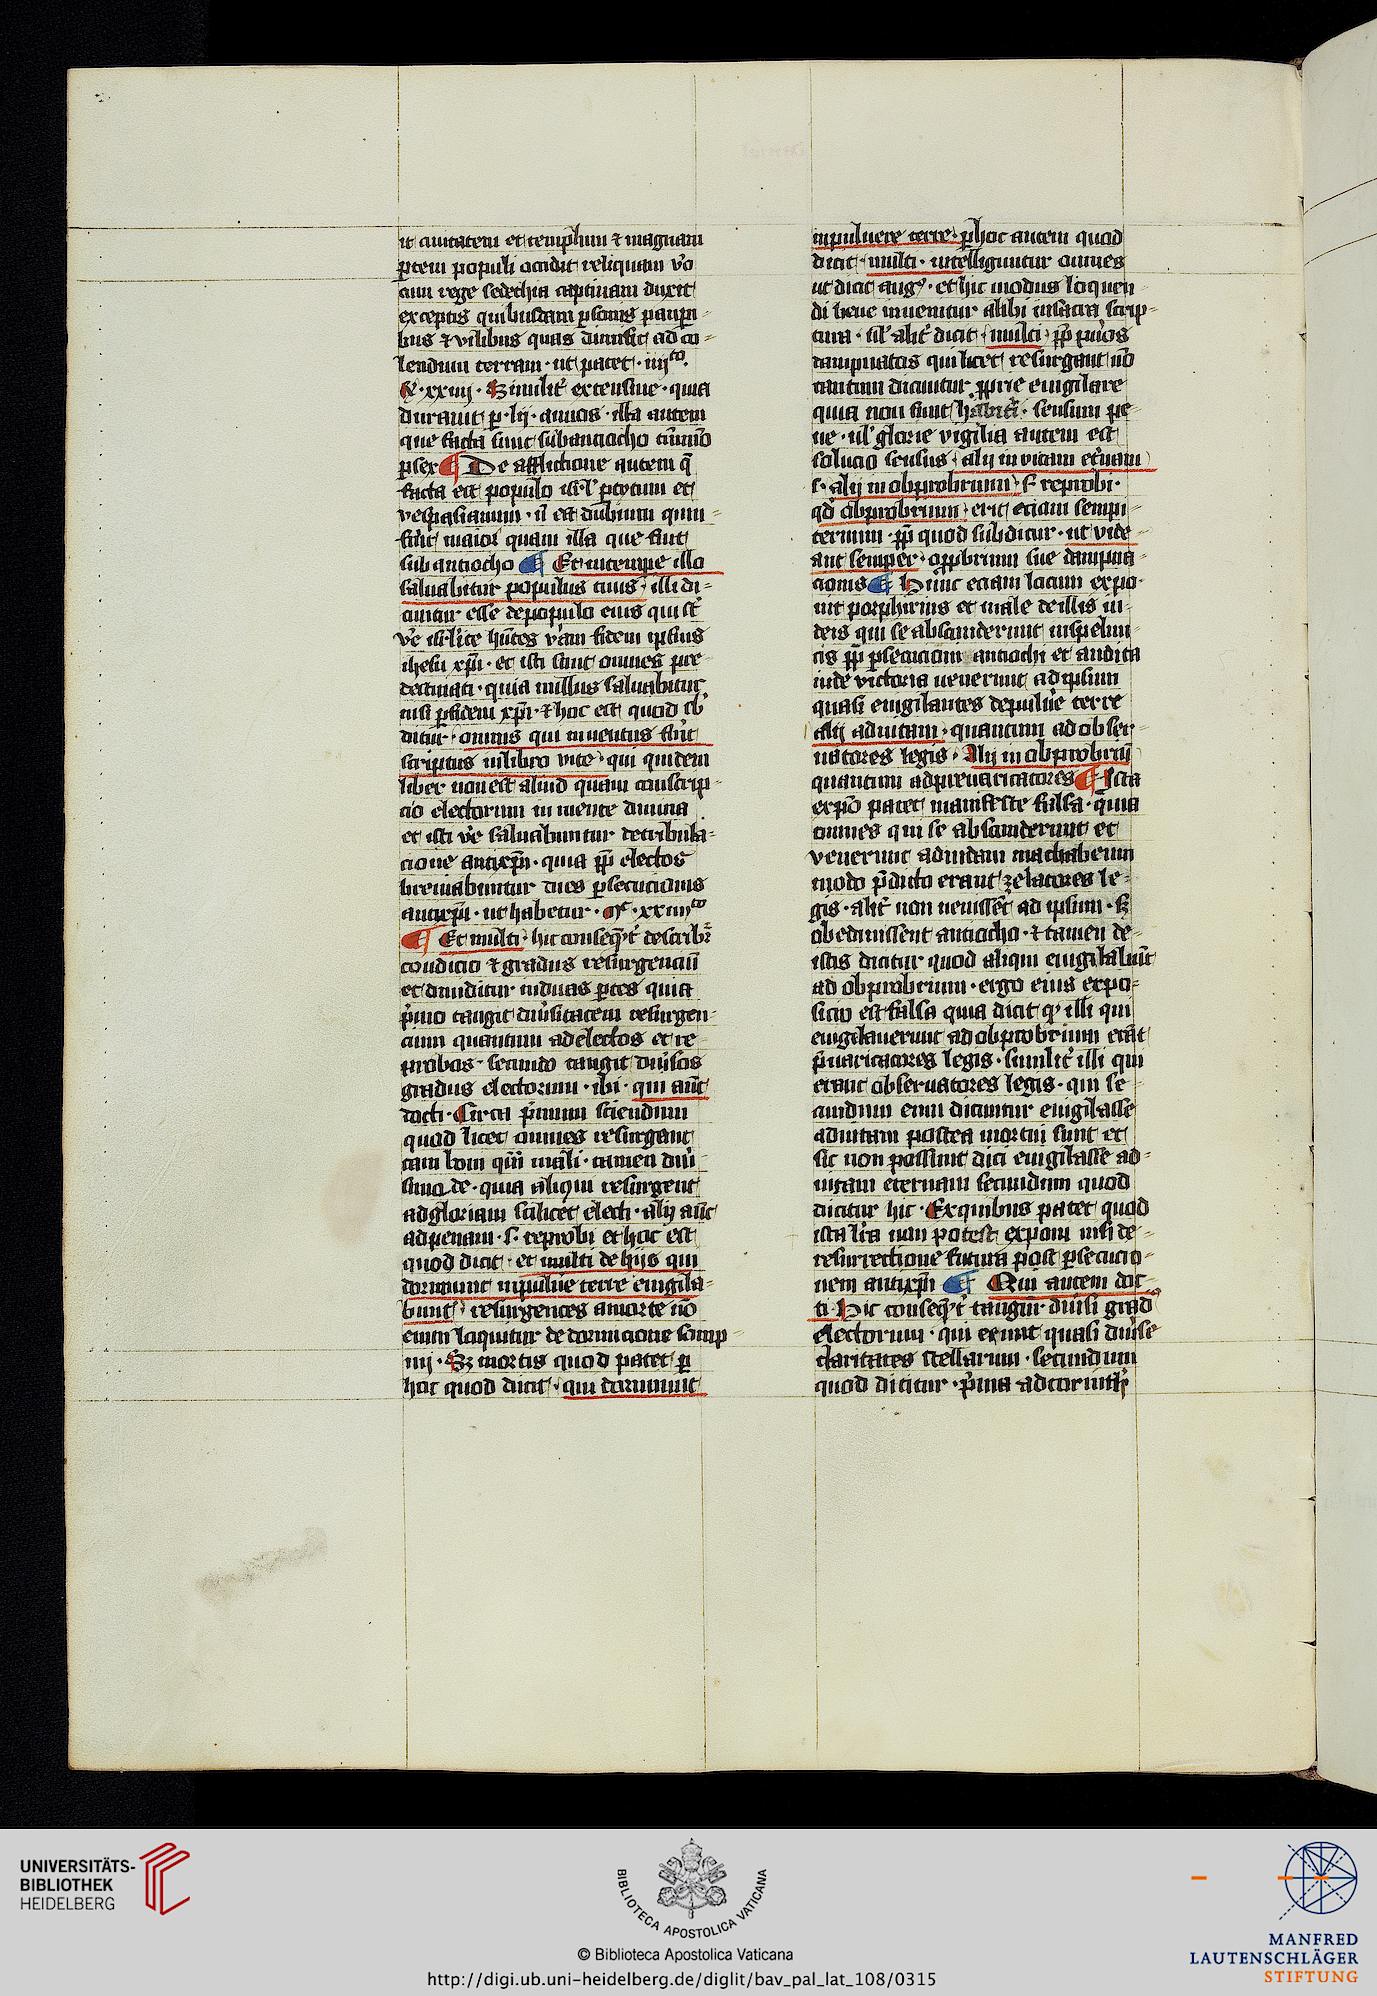 it ciuitatem et templum ⁊ magnam
ꝑtem populi occidit reliquam vͦo
cum rege sedechia captiuam duxit
exceptis quibusdam ꝑsonis paupi-
bus ⁊ vilibus quas dimisit ad co-
lendum terram · ut patet · iiijᵗᵒ
xxiiij · Similit̉ extensiue · quia
durauit ꝑ · lij · annos · illa autem
que facta sunt sub antiocho
¶ De afflictione autem q̄
facta est populo isrl̓ ꝑ tytum et
vespasianum · n̄ est dubium quin
fu̓it maior quam illa que fuit
sub antiocho ¶ Et in tempe illo
saluabitur populus tuus · illi di-
cuntur esse de populo eius qui st̄
ve̓ isrl̓ite hn̄tes vam̄ fidem ipsius
ihesu xp̄i · et isti sunt omnes pre-
destinati · quia nullus saluabitur
nisi ꝑ fidem xp̄i · ⁊ hoc est quod sb̓
ditur · omnis qui inuentus fu̓it
scriptus in libro vite · qui quidem
liber non est aliud quam conscrip-
cio electorum in mente diuina
et isti ve̓ saluabuntur de tribula-
cione antixp̄i · quia ꝓp̄ electos
breuiabuntur dies ꝑsecucionis
antixp̄i · ut habetur · mͭ · xxiiijᵗᵒ
¶ Et multi · hic conseq̄nt̓ describr̄
condicio ⁊ gradus resurgenciū
et diuiditur in duas ꝑtes quia
p̓mo tangit diu̓sitatem resurgen-
cium quantum ad electos et re-
probos · secundo tangit diu̓sos
gradus electorum · ibi · qui aūt
docti · Circa p̓mum sciendum
quod licet omnes resurgant
tam boni qm̄ mali · tamen diu̓-
simode · quia aliqui resurgent
ad gloriam scilicet electi · alij aūt
ad penam · s · reprobi et hoc est
quod dicit · et multi de hijs qui
dormiunt in pulue̓ terre euigila-
bunt · resurgentes a morte nō
enim loquitur de dormicione somp-
nij · Sꝫ mortis quod patet ꝑ
hoc quod dicit · qui dormiunt
in puluere terre · ꝑ hoc autem quod
dicit · multi · intelliguntur omnes
ut dicit augꝰ · et hic modus loquen-
di bene inuenitur alibi in sacra scrip-
tura · sil̓ alit̓ dicit · multi · ꝓp̄ pu̓os
dampnatos qui licet resurgant nō
tantum dicuntur ꝓprie euigilare
quia non sunt habituri · sensum pe-
ne · ul̓ glorie vigilia autem est
solucio sensus · alij in vitam et̓nam
s · alij in obprobrium · s reprobi ·
qd̓ obprobrium · erit eciam sempi-
ternum · ꝓp̄ quod subditur · ut vide-
ant semper · opprobrium sue dampna-
cionis ¶ Hunc eciam locum expo-
nit porphirius et male de illis iu-
deis qui se absconderunt in spelun-
cis ꝓp̄ ꝑsecucioni antiochi et audita
iude victoria uenerunt ad ipsum
quasi euigilantes de pulue̓ terre
alij ad vitam · quantum ad obser-
uatores legis · Alij in obprobriū
quantum ad preuaricatores ¶ Ista
exp̄o patet manifeste falsa · quia
omnes qui se absconderunt et
venerunt ad iudam machabeum
modo p̄dicto erant zelatores le-
gis · alit̓ non uenissēt ad ipsum · sꝫ
obediuissent antiocho · ⁊ tamen de
istis dicitur quod aliqui euigilauu̓t
ad obprobrium · ergo eius expo-
sicio est falsa quia dicit qͥ illi qui
euigilauerunt ad obprobrium erāt
p̄uaricatores legis · similit̓ illi qui
erant obseruatores legis · qui se-
cundum eum dicuntur euigilasse
ad uitam postea mortui sunt et
sic non possunt dici euigilasse ad
uitam eternam secundum quod
dicitur hic · Ex quibus patet quod
ista lr̄a non potest exponi nisi de
resurrectione futura post ꝑsecucio-
nem antixp̄i ¶ Qui autem doc-
ti · Hic conseq̄nt̓ tangūr diu̓si gradꝰ
electorum · qui erunt quasi diu̓se
claritates stellarum · secundum
quod dicitur · p̓ma ad corinth̓
UNIVERSITÄTS-
BIBLIOTHEK
HEIDELBERG
BIBLIOTECA APOSTOLICA VATICANA
© Biblioteca Apostolica Vaticana
http://digi.ub.uni-heidelberg.de/diglit/bav_pal_lat_108/0315
MANFRED
LAUTENSCHLÄGER
STIFTUNG